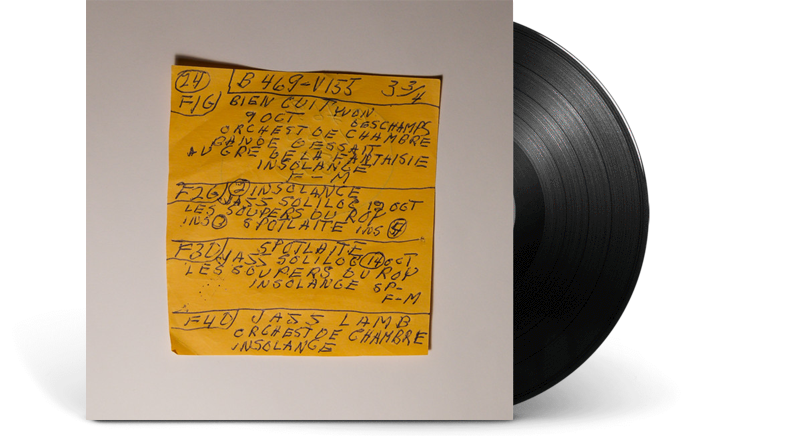 24 B 469-V155 3 3/4
F1G BIEN CUIT YVON
9 OCT DESCHAMPS
ORCHEST DE CHAMBRE
BANDE GESSAIT
AU GRE DE LA FANTAISIE
INSOLANGE
F-M
F2G 2 INSOLANCE
JASS SOLILOS 19 OCT
LES SOUPERS DU ROY
INS SPOTLAITE INS
F3D SPOTLAITE
JASS SOLILOS 14 OCT
LES SOUPERS DU ROY
INSOLANGE SP-
F-M
F4D JASS LAMB
ORCHEST DE CHAMBRE
INSOLANGE